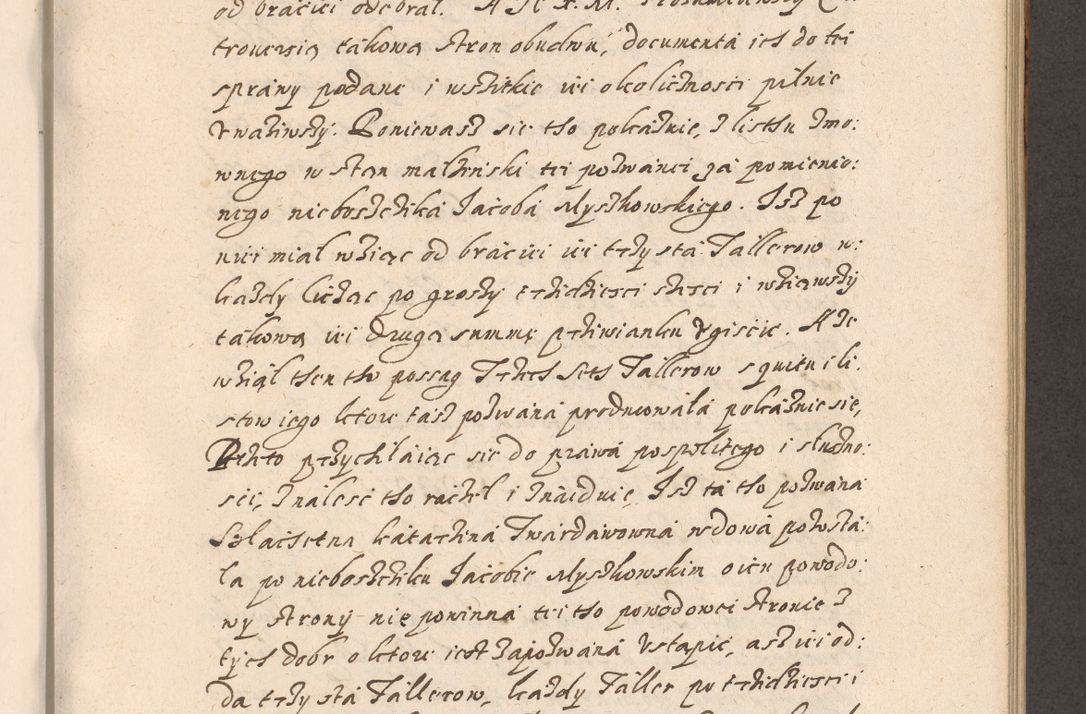 od braciei odebrał. A Je X. M.
trouersią takową stron obudwu, documenta ich do tei
sprawy podane i wszitkie iei okolicznosci pilnie
Vważiwszy. Poniewasz sie tho pokażuie, z listhu zmo:
wnego w stan małżenski tei pozwanei za pomienio:
nego nieboszczika Jacoba Myszkowskiego. Isz po
niei miał wziąc od braciei iei trzy sta Tallerow w:
każdy licząc po groszy trzidziesci szesci i wziąwszy
takową iei drugą summę prziwianku Vgiscic. A Je
wziął then tho possag Trzech seth Tallerow s quitu i li:
stow iego ktore tasz pozwana produowała pokażuie się,
Przeto przychilaiąc sie do prawa pospolitego i słuszno:
sci, znalesc tho raczył i znaiduie, Isz ta tho pozwana
Szlachetna Katarzina Twardawowna wdowa pozosta:
ła po nieboszcziku Jacobie Myszkowskim oicu powodo:
wy strony nie powinna tei tho powodowei stronie z
tych dobr o ktore iest zapozwana Vstapic, asz iei od:
da trzy sta Tallerow, każdy Taller po trzidziesci i